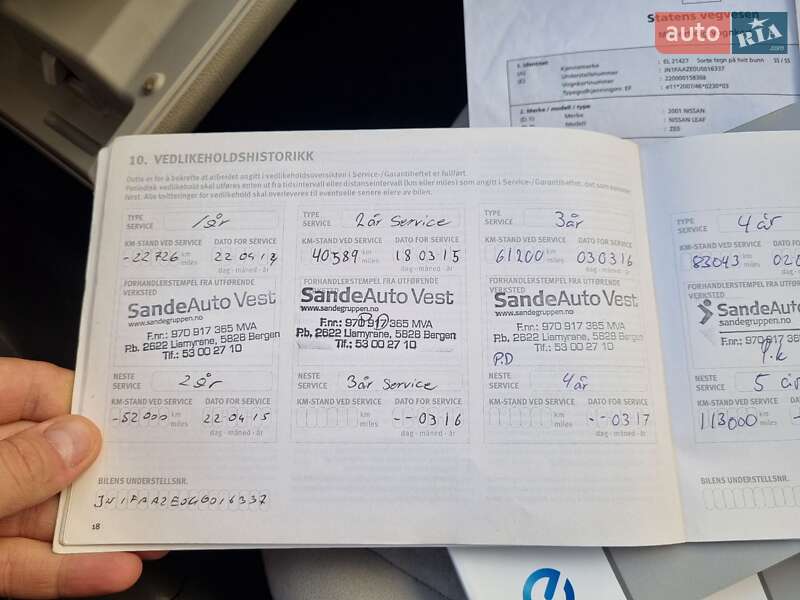 Statens vegvesen
auto RIA .com
1. Identitet
(A) Kjennemerke : EL 21427 Sorte tegn på hvit bunn SS / SS
(E) Understellsnummer : JN1FAAZE0U0016337
Vognkortnummer : 220000158308
Typegodkjenningsnr. EF : e11*2007/46*0230*03
2. Merke / modell / type
(D.1) Merke : 2001 NISSAN
Modell : NISSAN LEAF
: ZE0
10. VEDLIKEHOLDSHISTORIKK
Dette er for å bekrefte at arbeidet angitt i vedlikeholdsoversikten i Service-/Garantiheftet er fullført.
Periodisk vedlikehold skal utføres enten ut fra tidsintervall eller distanseintervall (km eller miles) som angitt i Service-/Garantiheftet, det som kommer
først. Alle kvitteringer for vedlikehold skal overleveres til eventuelle senere eiere av bilen.
TYPE SERVICE 1 år
KM-STAND VED SERVICE DATO FOR SERVICE
-22726 km miles 22 04 13
dag - måned - år
FORHANDLERSTEMPEL FRA UTFØRENDE
VERKSTED
SandeAuto Vest
www.sandegruppen.no
F.nr.: 970 917 365 MVA
P.b. 2622 Liamyrane, 5828 Bergen
Tlf.: 53 00 27 10
NESTE SERVICE 2 år
KM-STAND VED SERVICE DATO FOR SERVICE
-52000 km miles 22 04 15
dag - måned - år
TYPE SERVICE 2 år Service
KM-STAND VED SERVICE DATO FOR SERVICE
40589 km miles 18 03 15
dag - måned - år
FORHANDLERSTEMPEL FRA UTFØRENDE
VERKSTED
SandeAuto Vest
www.sandegruppen.no
F.nr.: 970 917 365 MVA
P.b. 2622 Liamyrane, 5828 Bergen
Tlf.: 53 00 27 10
NESTE SERVICE 3 år Service
KM-STAND VED SERVICE DATO FOR SERVICE
km miles --03 16
dag - måned - år
TYPE SERVICE 3 år
KM-STAND VED SERVICE DATO FOR SERVICE
61200 km miles 03 03 16
dag - måned - år
FORHANDLERSTEMPEL FRA UTFØRENDE
VERKSTED
SandeAuto Vest
www.sandegruppen.no
F.nr.: 970 917 365 MVA
P.b. 2622 Liamyrane, 5828 Bergen
Tlf.: 53 00 27 10
P.D
NESTE SERVICE 4 år
KM-STAND VED SERVICE DATO FOR SERVICE
km miles --03 17
dag - måned - år
TYPE SERVICE 4 år
KM-STAND VED SERVICE DATO FO
83043 km miles 02 0
dag - m
FORHANDLERSTEMPEL FRA UTFØ
VERKSTED
SandeAuto
www.sandegruppen.no
F.nr.: 970 917
P.b. 2622 Liamyrane,
NESTE SERVICE 5 år
KM-STAND VED SERVICE DATO F
113000 km miles
dag
BILENS UNDERSTELLSNR.
JN1FAAZE0U0016337
18
BILENS UNDERSTELLSNR.